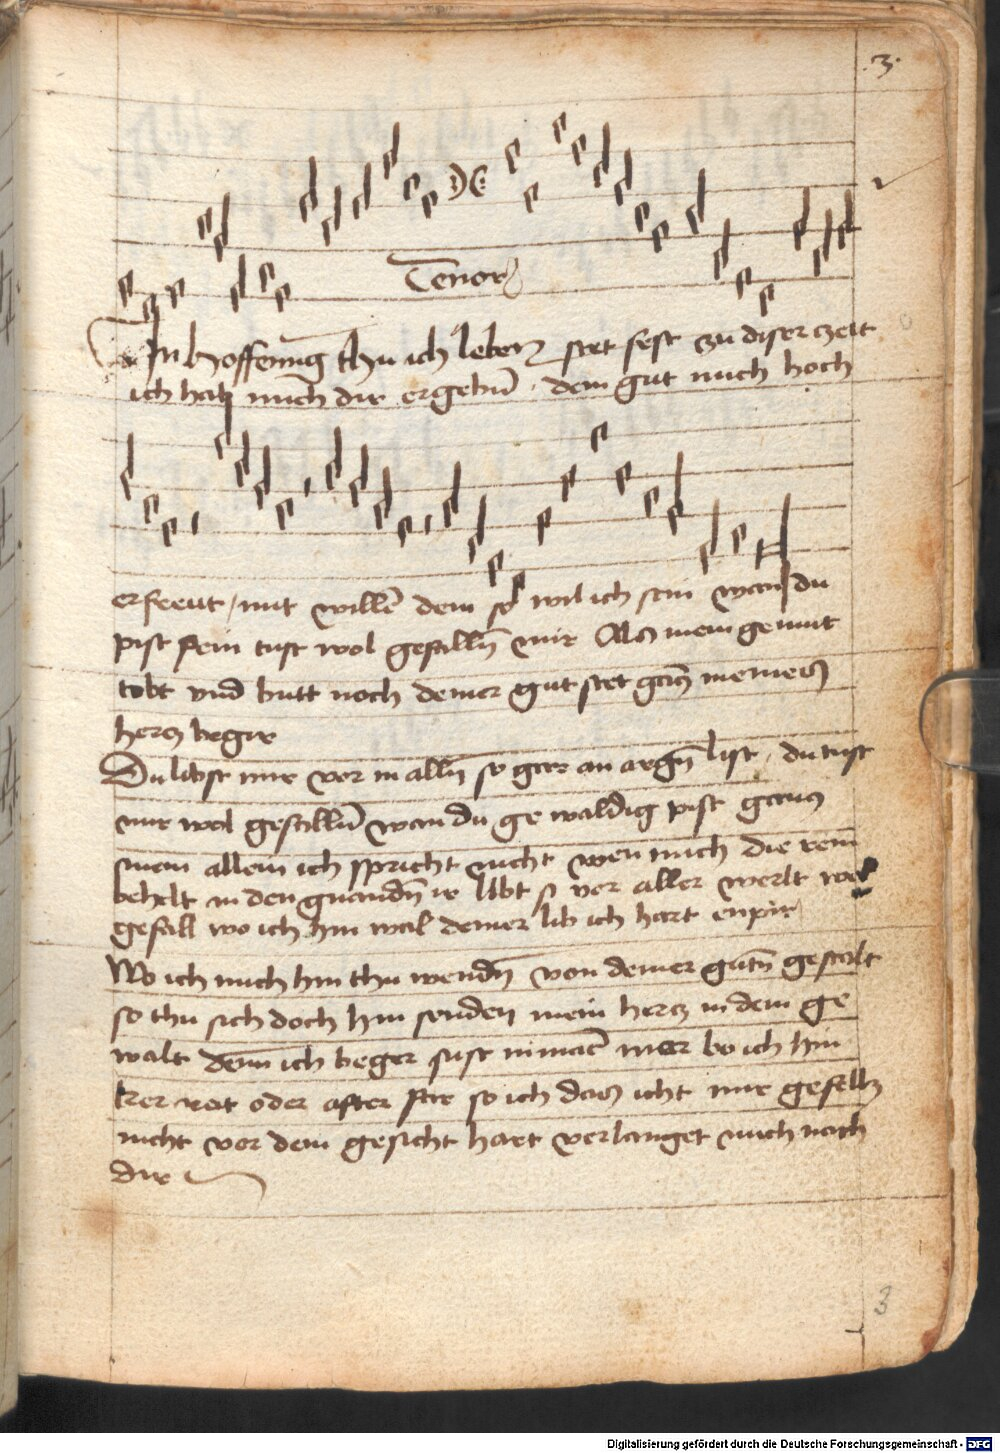 .3.
Tenor
In hoffennug thu ich leben stet fest zu diser zeit
ich hab mich dir ergebn̄ · dem gut mich hoch
erfreut / mit willē dein so wil ich sein wan du
pist fein tust wol gefalln̄ mir Als mein gemut
tobt vnd butt noch deiner gut stet gancz meines
hercz beger
Du libst mir vor in alln̄ so gar an argn̄ list · du tust
mir wol gefalln̄ wan du ge waldig pist gancz
mein allein ich spricht nicht wen mich die rein
behelt in den gnandn̄ ir libt vor aller werlt
gefall wo ich hin wal deiner lib ich hart enpir
Wo ich mich hin thu wendn̄ von deiner gutn̄ gestalt
so thu sich doch hin senden mein hercz in dem ge
walt dem ich beger sust nimāt mer bo ich hin
ker reit oder after far so ich das icht mir gefelle
nicht vor dem gesicht hart verlanget mich nach
dir
3
Digitalisierung gefördert durch die Deutsche Forschungsgemeinschaft - DFG